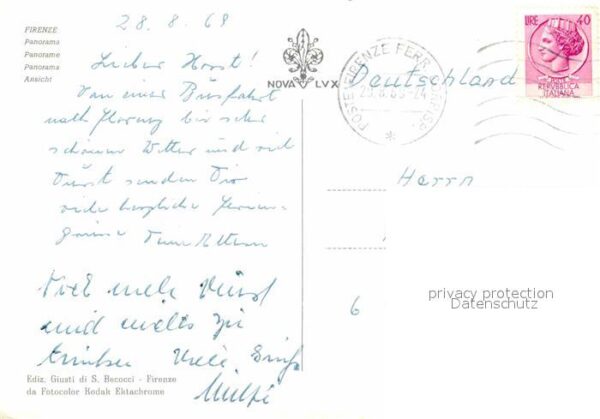 FIRENZE
Panorama
Panorame
Panorama
Ansicht
28.8.69
Lieber Horst!
Von einer Busfahrt
nach Florenz bei sehr
schönem Wetter und viel
Durst senden Dir
viele herzliche Ferien-
grüsse Deine Eltern
Noch mehr Durst
und nichts zu
trinken Viele Grüße
NOVA LUX
POSTE FIRENZE FERR
Deutschland
LIRE 40
REPVBBLICA
ITALIANA
Herrn
6
privacy protection
Datenschutz
Ediz. Giusti di S. Becocci - Firenze
da Fotocolor Kodak Ektachrome